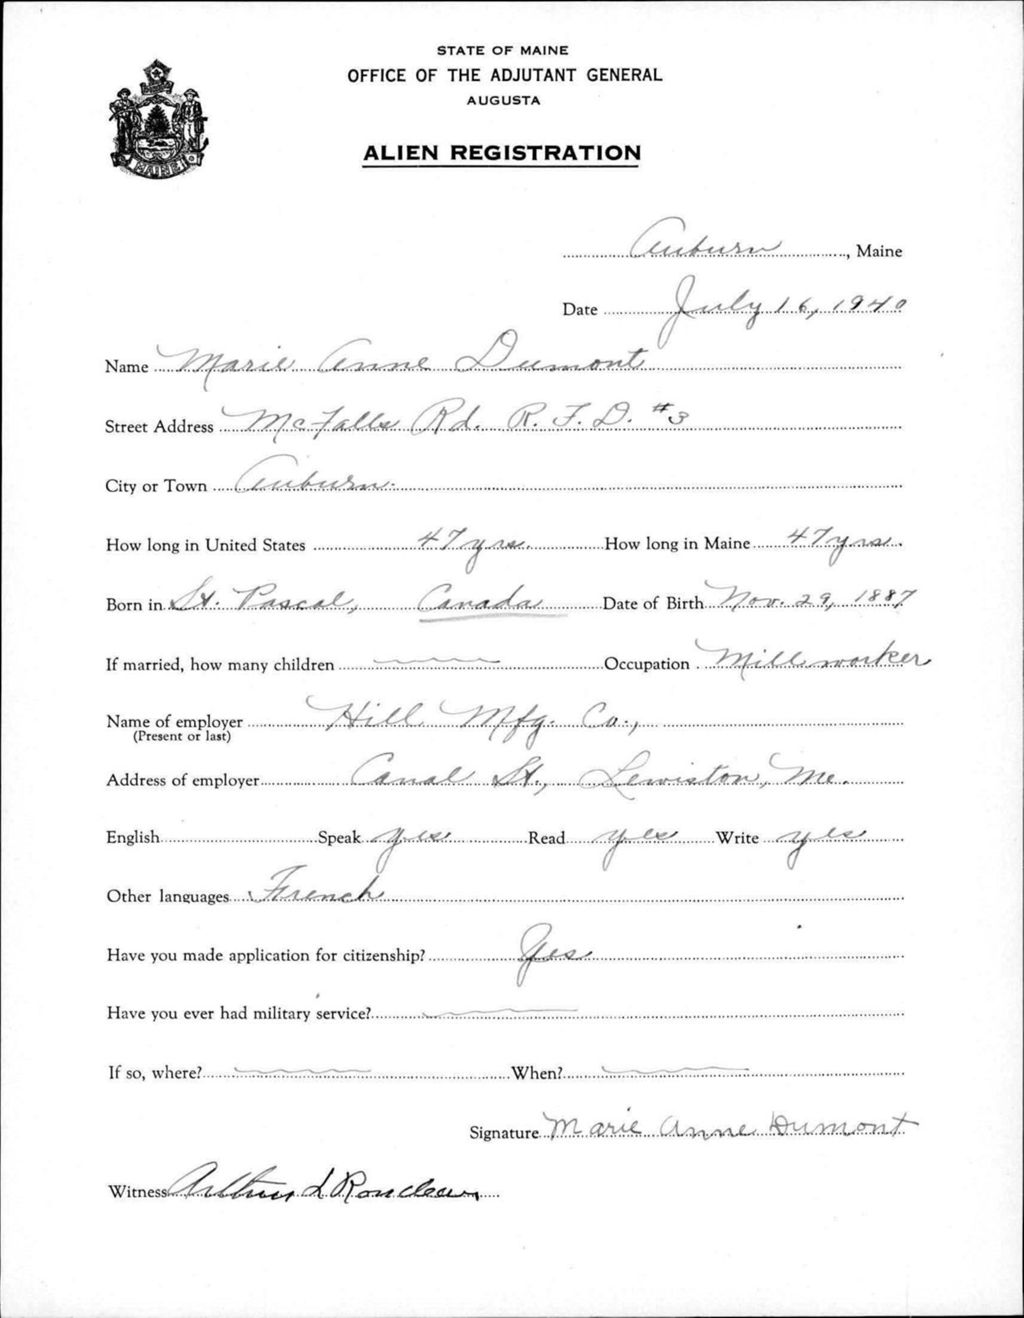 STATE OF MAINE
OFFICE OF THE ADJUTANT GENERAL
AUGUSTA
ALIEN REGISTRATION
MAINE
Auburn, Maine
Date July 16, 1940
Name Marie Anne Dumont
Street Address McFalls Rd. R.F.D. #3
City or Town Auburn.
How long in United States 47 yrs. How long in Maine 47 yrs.
Born in St. Pascal, Canada Date of Birth Nov. 29, 1887
If married, how many children Occupation Mill worker
Name of employer Hill Mfg. Co.,
(Present or last)
Address of employer Canal St., Lewiston, Me.
English Speak yes Read yes Write yes
Other languages French
Have you made application for citizenship? Yes
Have you ever had military service?
If so, where? When?
Signature Marie Anne Dumont
Witness Arthur L Rondeau